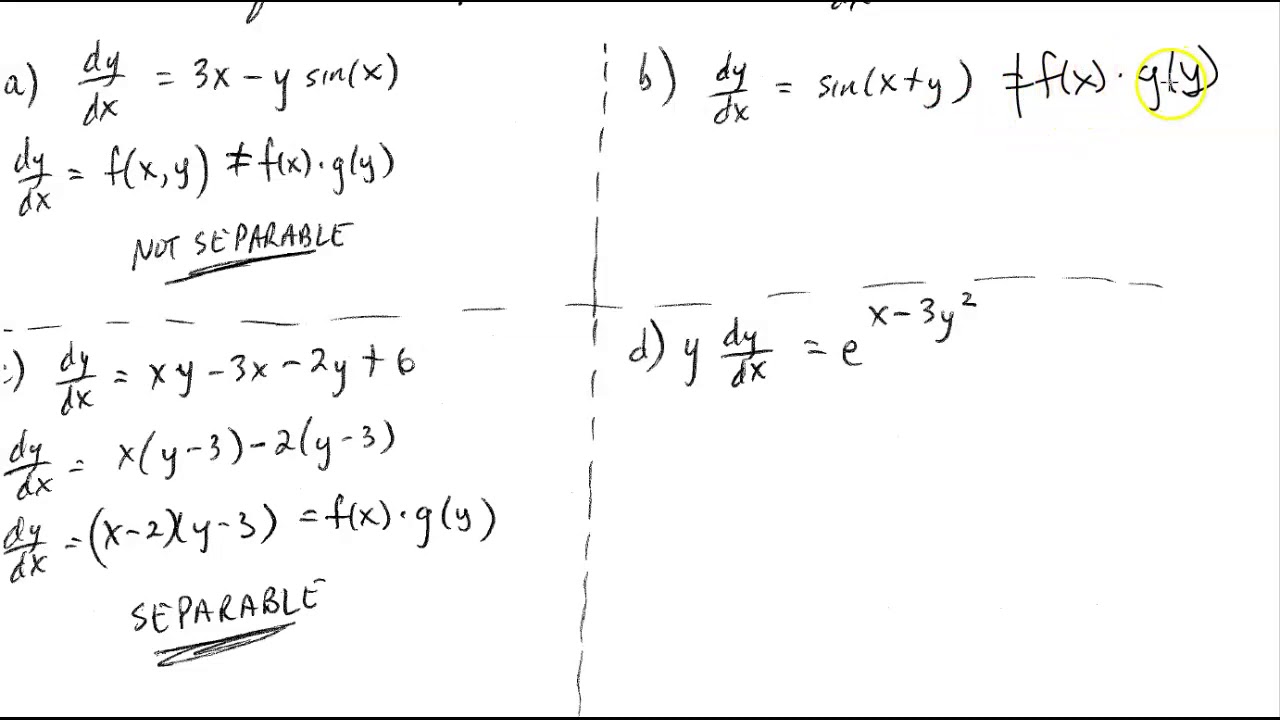 a) dy/dx = 3x - y sin(x)
dy/dx = f(x,y) ≠ f(x)·g(y)
NOT SEPARABLE
b) dy/dx = sin(x+y) ≠ f(x)·g(y)
:) dy/dx = xy - 3x - 2y + 6
dy/dx = x(y-3) - 2(y-3)
dy/dx = (x-2)(y-3) = f(x)·g(y)
SEPARABLE
d) y dy/dx = e^(x-3y²)